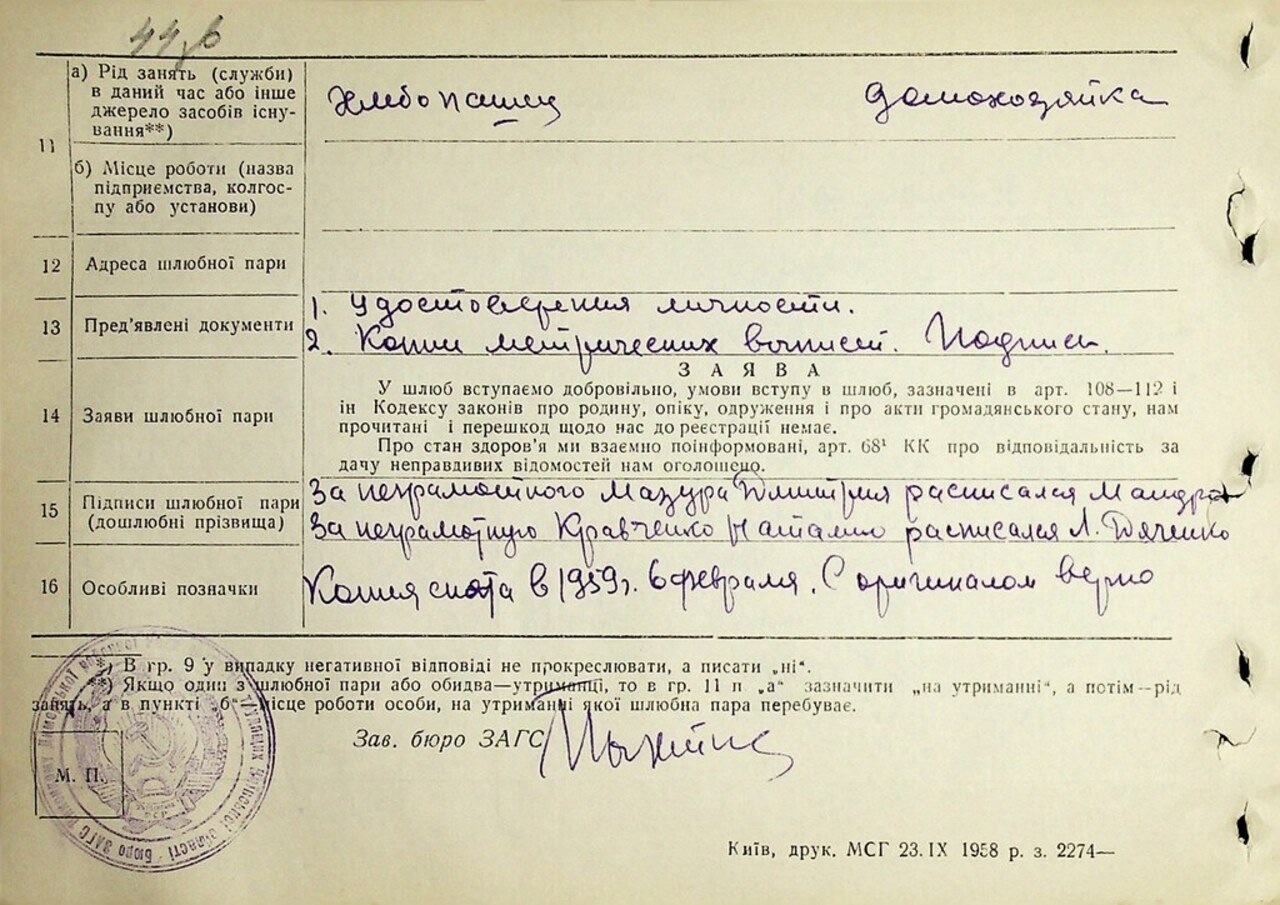 11 а) Рід занять (служби) в даний час або інше джерело засобів існування**) Хлебопашец Домохозяйка
б) Місце роботи (назва підприємства, колгоспу або установи)
12 Адреса шлюбної пари
13 Пред’явлені документи
1. Удостоверения личности.
2. Копии метрических выписей. Подписи.
14 Заяви шлюбної пари
ЗАЯВА
У шлюб вступаємо добровільно, умови вступу в шлюб, зазначені в арт. 108—112 і
ін Кодексу законів про родину, опіку, одруження і про акти громадянського стану, нам
прочитані і перешкод щодо нас до реєстрації немає.
Про стан здоров’я ми взаємно поінформовані, арт. 68¹ КК про відповідальність за
дачу неправдивих відомостей нам оголошено.
15 Підписи шлюбної пари (дошлюбні прізвища)
За неграмотного Мазура Дмитрия расписался
За неграмотную Кравченко Наталию расписался Л. Дяченко
16 Особливі позначки
Копия снята в 1959 г. 6 февраля. С оригиналом верно
*) В гр. 9 у випадку негативної відповіді не прокреслювати, а писати „ні“.
**) Якщо один з шлюбної пари або обидва—утриманці, то в гр. 11 п „а“ зазначити „на утриманні“, а потім—рід
занять, а в пункті „б“ місце роботи особи, на утриманні якої шлюбна пара перебуває.
Зав. бюро ЗАГС
М. П.
Київ, друк. МСГ 23.IX 1958 р. з. 2274—